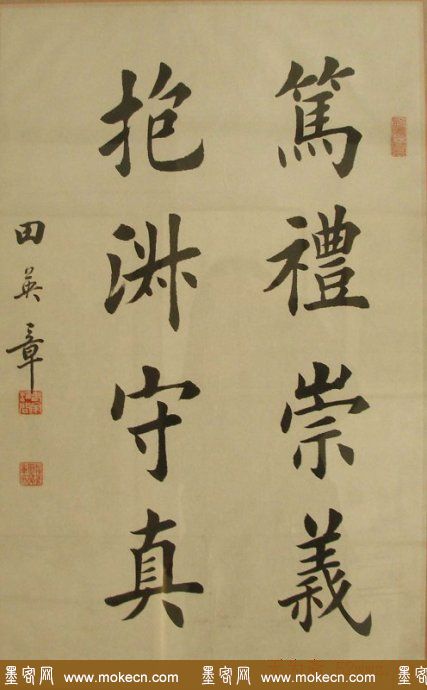 篤禮崇義
抱淵守真
田英章
墨客网 www.mokecn.com 墨客网 www.mokecn.com